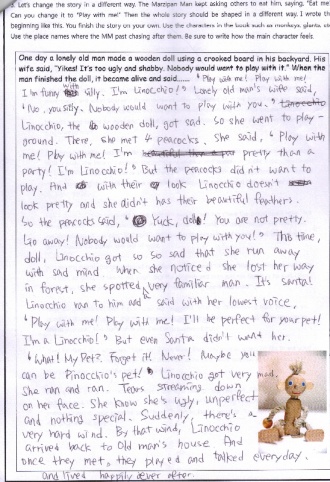 2. Let's change the story in a different way. The Marzipan Man kept asking others to eat him, saying, "Eat me
Can you change it to "Play with me!" Then the whole story should be shaped in a different way. I wrote th
beginning like this. You finish the story on your own. Use the characters in the book such as monkeys, giants, sn
Use the place names where the MM past chasing after them. Be sure to write how the main character feels.
One day a lonely old man made a wooden doll using a crooked board in his backyard. His
wife said, "Yikes! It's too ugly and shabby. Nobody would want to play with it." When the
man finished the doll, it became alive and said...... "Play with me! Play with me!
I'm funny with silly. I'm Linocchio!" Lonely old man's wife said,
"No, you silly. Nobody would want to play with you."
Linocchio, the wooden doll, got sad. So she went to play-
ground. There, she met 4 peacocks. She said, "Play with
me! Play with me! I'm pretty than a
party! I'm Linocchio!" But the peacocks didn't want to
play. And with their look Linocchio doesn't
look pretty and she didn't has their beautiful feathers.
So the peacocks said, "Yuck, doll! You are not pretty.
Go away! Nobody would want to play with you!" This time,
doll, Linocchio got so so sad that she run away
with sad mind. When she noticed she lost her way
in forest, she spotted very familiar man. It's santa!
Linocchio ran to him and said with her lowest voice,
"Play with me! Play with me! I'll be perfect for your pet!
I'm a Linocchio!" But even Santa didn't want her.
"What! My Pet? Forget it! Never! Maybe you
can be Pinocchio's pet!" Linocchio got very mad.
She ran and ran. Tears streaming down
on her face. She know she's ugly, unperfect
and nothing special. Suddenly, there's a
very hard wind. By that wind, Linocchio
arrived back to Old man's house. And
once they met, they played and talked everyday.
and lived happily ever after.